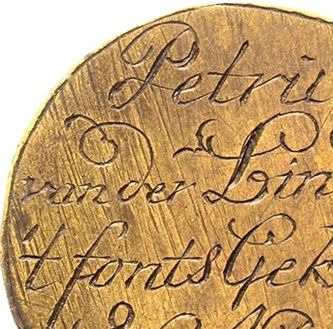 Petru
van der Lin
't fonts Gek